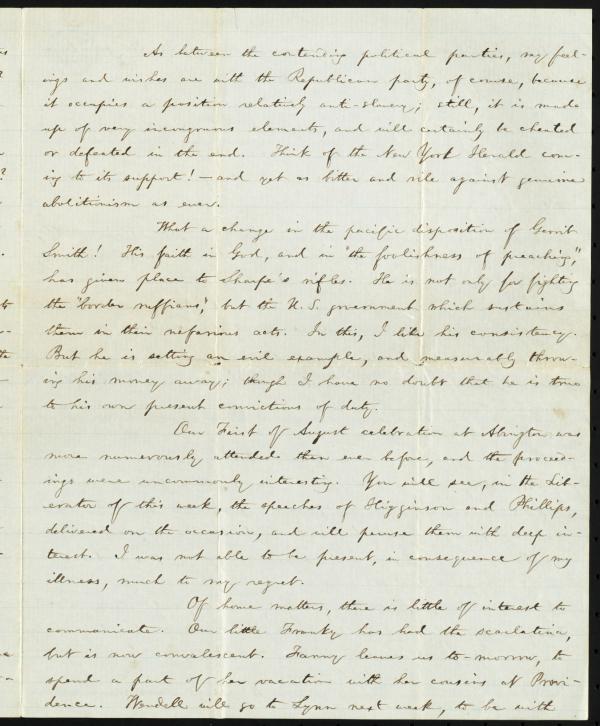 As between the contending political parties, my feel-
ings and wishes are with the Republican party, of course, because
it occupies a position relatively anti-slavery; still, it is made
up of very incongruous elements, and will certainly be cheated
or defeated in the end. Think of the New York Herald com-
ing to its support! — and yet as bitter and vile against genuine
abolitionism as ever.
What a change in the pacific disposition of Gerrit
Smith! His faith in God, and in "the foolishness of preaching,"
has given place to Sharpe's rifles. He is not only for fighting
the "border ruffians," but the U. S. government which sustains
them in their nefarious acts. In this, I like his consistency.
But he is setting an evil example, and measurably throw-
ing his money away; though I have no doubt that he is true
to his own present convictions of duty.
Our First of August celebration at Abington was
more numerously attended than ever before, and the proceed-
ings were uncommonly interesting. You will see, in the Lib-
erator of this week, the speeches of Higginson and Phillips,
delivered on the occasion, and will peruse them with deep in-
terest. I was not able to be present, in consequence of my
illness, much to my regret.
Of home matters, there is little of interest to
communicate. Our little Franky has had the scarlatina,
but is now convalescent. Fanny leaves us to-morrow, to
spend a part of her vacation with her cousins at Provi-
dence. Wendell will go to Lynn next week, to be with